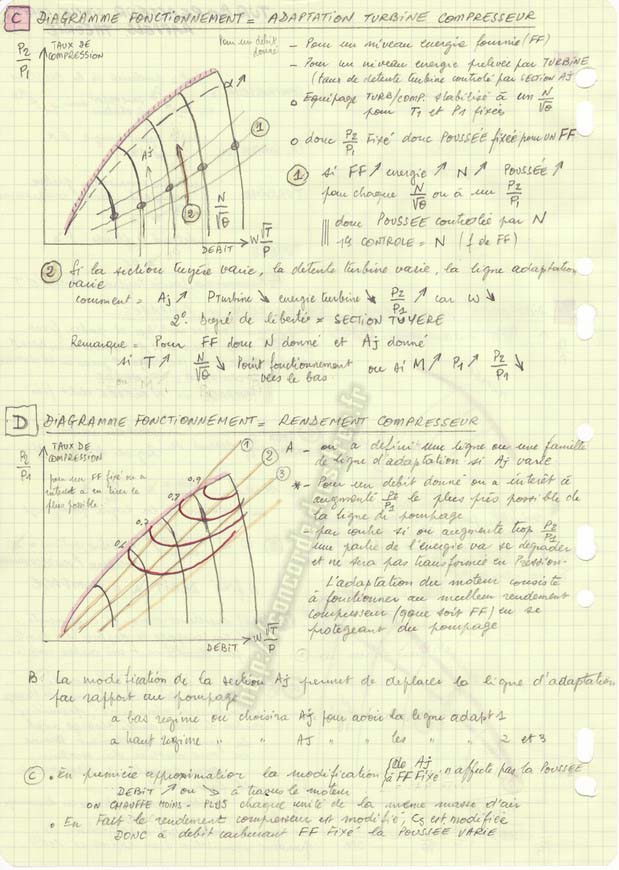 C DIAGRAMME FONCTIONNEMENT = ADAPTATION TURBINE COMPRESSEUR
P2/P1
TAUX DE
COMPRESSION
Pour un débit
donné
α ↗
Aj
1
2
N/√θ
DEBIT
W√T/P
- Pour un niveau energie fournie (FF)
- Pour un niveau energie prelevée par TURBINE
(taux de detente turbine controlé par SECTION AJ
o Equipage TURB/COMP. stabilisé à un N/√θ
pour T1 et P1 fixés
o donc P2/P1 Fixé donc POUSSÉE fixée pour un FF
1 si FF ↗ energie ↗ N ↗ POUSSÉE ↗
pour chaque N/√θ on à un P2/P1
donc POUSSEE controlée par N
1er CONTROLE = N (f de FF)
2 Si la section tuyère varie, la detente turbine varie, la ligne adaptation
varie
comment = Aj ↗ P turbine ↘ energie turbine ↘ P2/P1 ↗ car W ↘
2e Degré de liberté = SECTION TUYERE
Remarque = Pour FF donc N donné et Aj donné
si T ↗ N/√θ ↘ Point fonctionnement ou si M ↗ P1 ↗ P2/P1 ↘
vers le bas
D DIAGRAMME FONCTIONNEMENT = RENDEMENT COMPRESSEUR
P2/P1
TAUX DE
COMPRESSION
pour un FF fixé on a
interêt à en tirer le
plus possible
1
2
3
0,9
0,8
0,7
0,6
DEBIT
W√T/P
A - on a defini une ligne ou une famille
de ligne d'adaptation si Aj varie
* - Pour un debit donné on a interêt à
augmenté P2/P1 le plus près possible de
la ligne de pompage
par contre si on augmente trop P2/P1
une partie de l'energie va se degrader
et ne sera pas transformée en Pression-
L'adaptation du moteur consiste
à fonctionner au meilleur rendement
compresseur (qque soit FF) en se
protegeant du pompage
B La modification de la section Aj permet de deplacer la ligne d'adaptation
par rapport au pompage
a bas regime on choisira Aj pour avoir la ligne adapt 1
a haut regime " " AJ " " les " " 2 et 3
C . En première approximation la modification de Aj à FF Fixé n'affecte pas la POUSSEE
DEBIT ↗ ou ↘ à travers le moteur
ON CHAUFFE MOINS - PLUS chaque unité de la même masse d'air
. En Fait le rendement compresseur est modifié, Cs est modifiée
DONC à debit carburant FF FIXÉ la POUSSEE VARIE